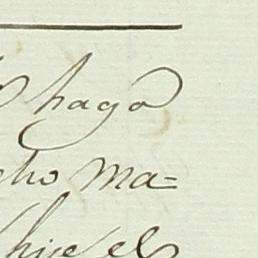 hago
cho ma=
hijo el